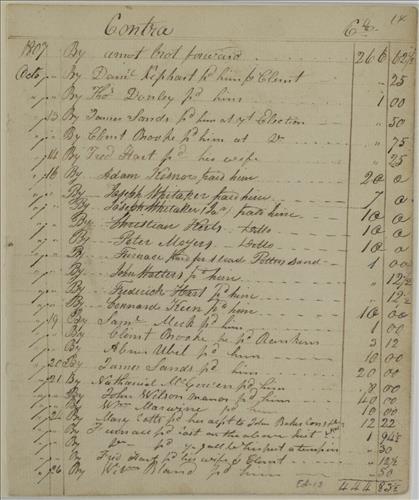 Contra Cr. 14
1807 By amot brot forward 266 62½
Octo " By Danl. Kephart pd him & Clint " 25
" By Thos. Danley pd him 1 00
" 13 By James Sands pd him at ye Election " 50
" By Clint Brooke pd him at Do " 75
" 14 By Fred Hart pd his wife " 25
" 16 By Adam paid him 20 0
" By Joseph Whitaker paid him 7 0
" By Joseph Whitaker paid him 10 0
" By Christian Ditto 10 0
" By Peter Meyers Ditto 10 0
" By Furnace Potters sand 1 00
" By John pd him " 12½
" By Frederick Hart pd him " 12½
" By Leonard Keen pd him 10 00
" 19 By Saml. Meek pd him 1 00
" By Clint Brooke 3 12
" By Abm Ubel pd him 10 00
" 20 By James Sands pd him 20 00
" 21 By Nathaniel McGowen pd him 8 00
" By John Wilson pd him 40 00
" By Wm pd him 10 00
By Mary pd her 12 22
" By Furnace pd cost on the above 1 94½
" By Do pd 50
" By Fred Hart pd his wife & Clint " 12½
" 26 By Wm Bland pd him " 50
Ed-13 444 83½